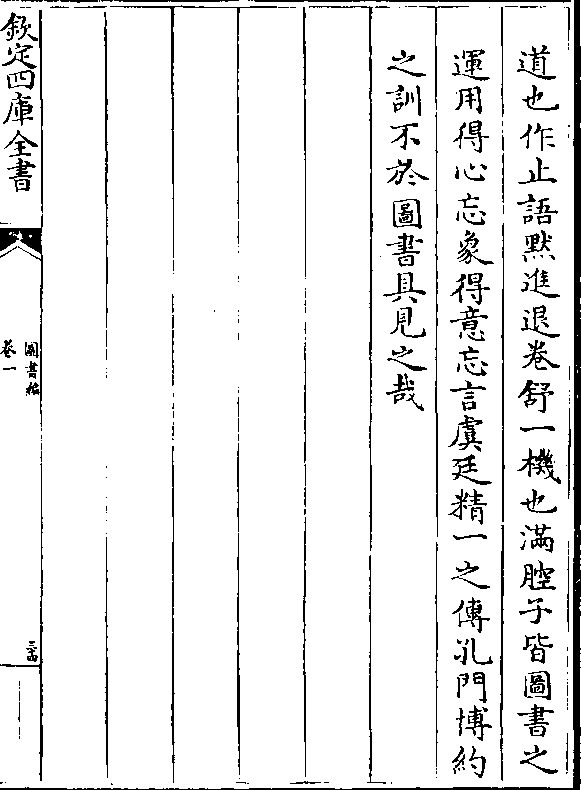 道也作止語默進退卷舒一機也滿腔子皆圖書之
運用得心忘象得意忘言虞廷精一之傳孔門博約
之訓不於圖書具見之哉
欽定四庫全書
圖書編
卷一
三四